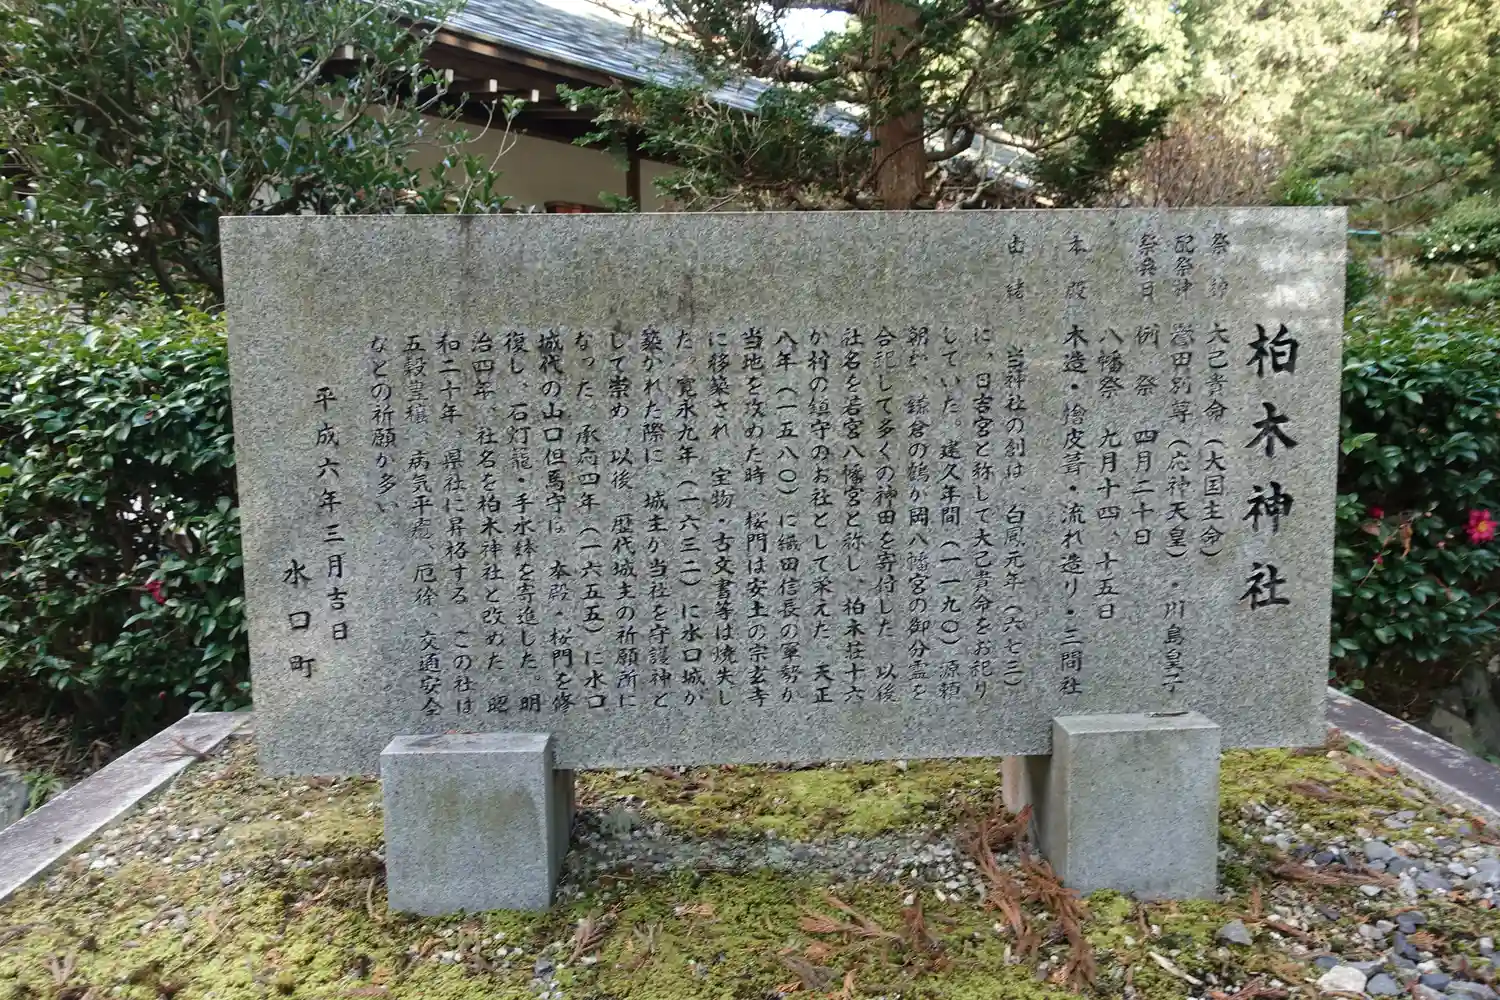 柏木神社
祭神 大己貴命(大国主命)
配祭神 誉田別尊(応神天皇)・川島皇子
祭典日 例祭 四月二十日
八幡祭 九月十四、十五日
本殿 木造・檜皮葺・流れ造り・三間社
由緒 当神社の創は、白鳳元年(六七三)
に、日吉宮と称して大己貴命をお祀り
していた。建久年間(一一九〇)源頼
朝が、鎌倉の鶴が岡八幡宮の御分霊を
合祀して多くの神田を寄付した 以後
社名を若宮八幡宮と称し 柏木荘十六
か村の鎮守のお社として栄えた。天正
八年(一五八〇)に織田信長の軍勢が
当地を攻めた時、桜門は安土の宗玄寺
に移築され、宝物・古文書等は焼失し
た。寛永九年(一六三二)に水口城が
築かれた際に、城主が当社を守護神と
して崇め、以後、歴代城主の祈願所に
なった。承応四年(一六五五)に水口
城代の山口但馬守は、本殿・桜門を修
復し、石灯籠・手水鉢を寄進した。明
治四年、社名を柏木神社と改めた。昭
和二十年、県社に昇格する この社は
五穀皇穣、病気平癒、厄除、交通安全
などの祈願が多い
平成六年三月吉日
水口町